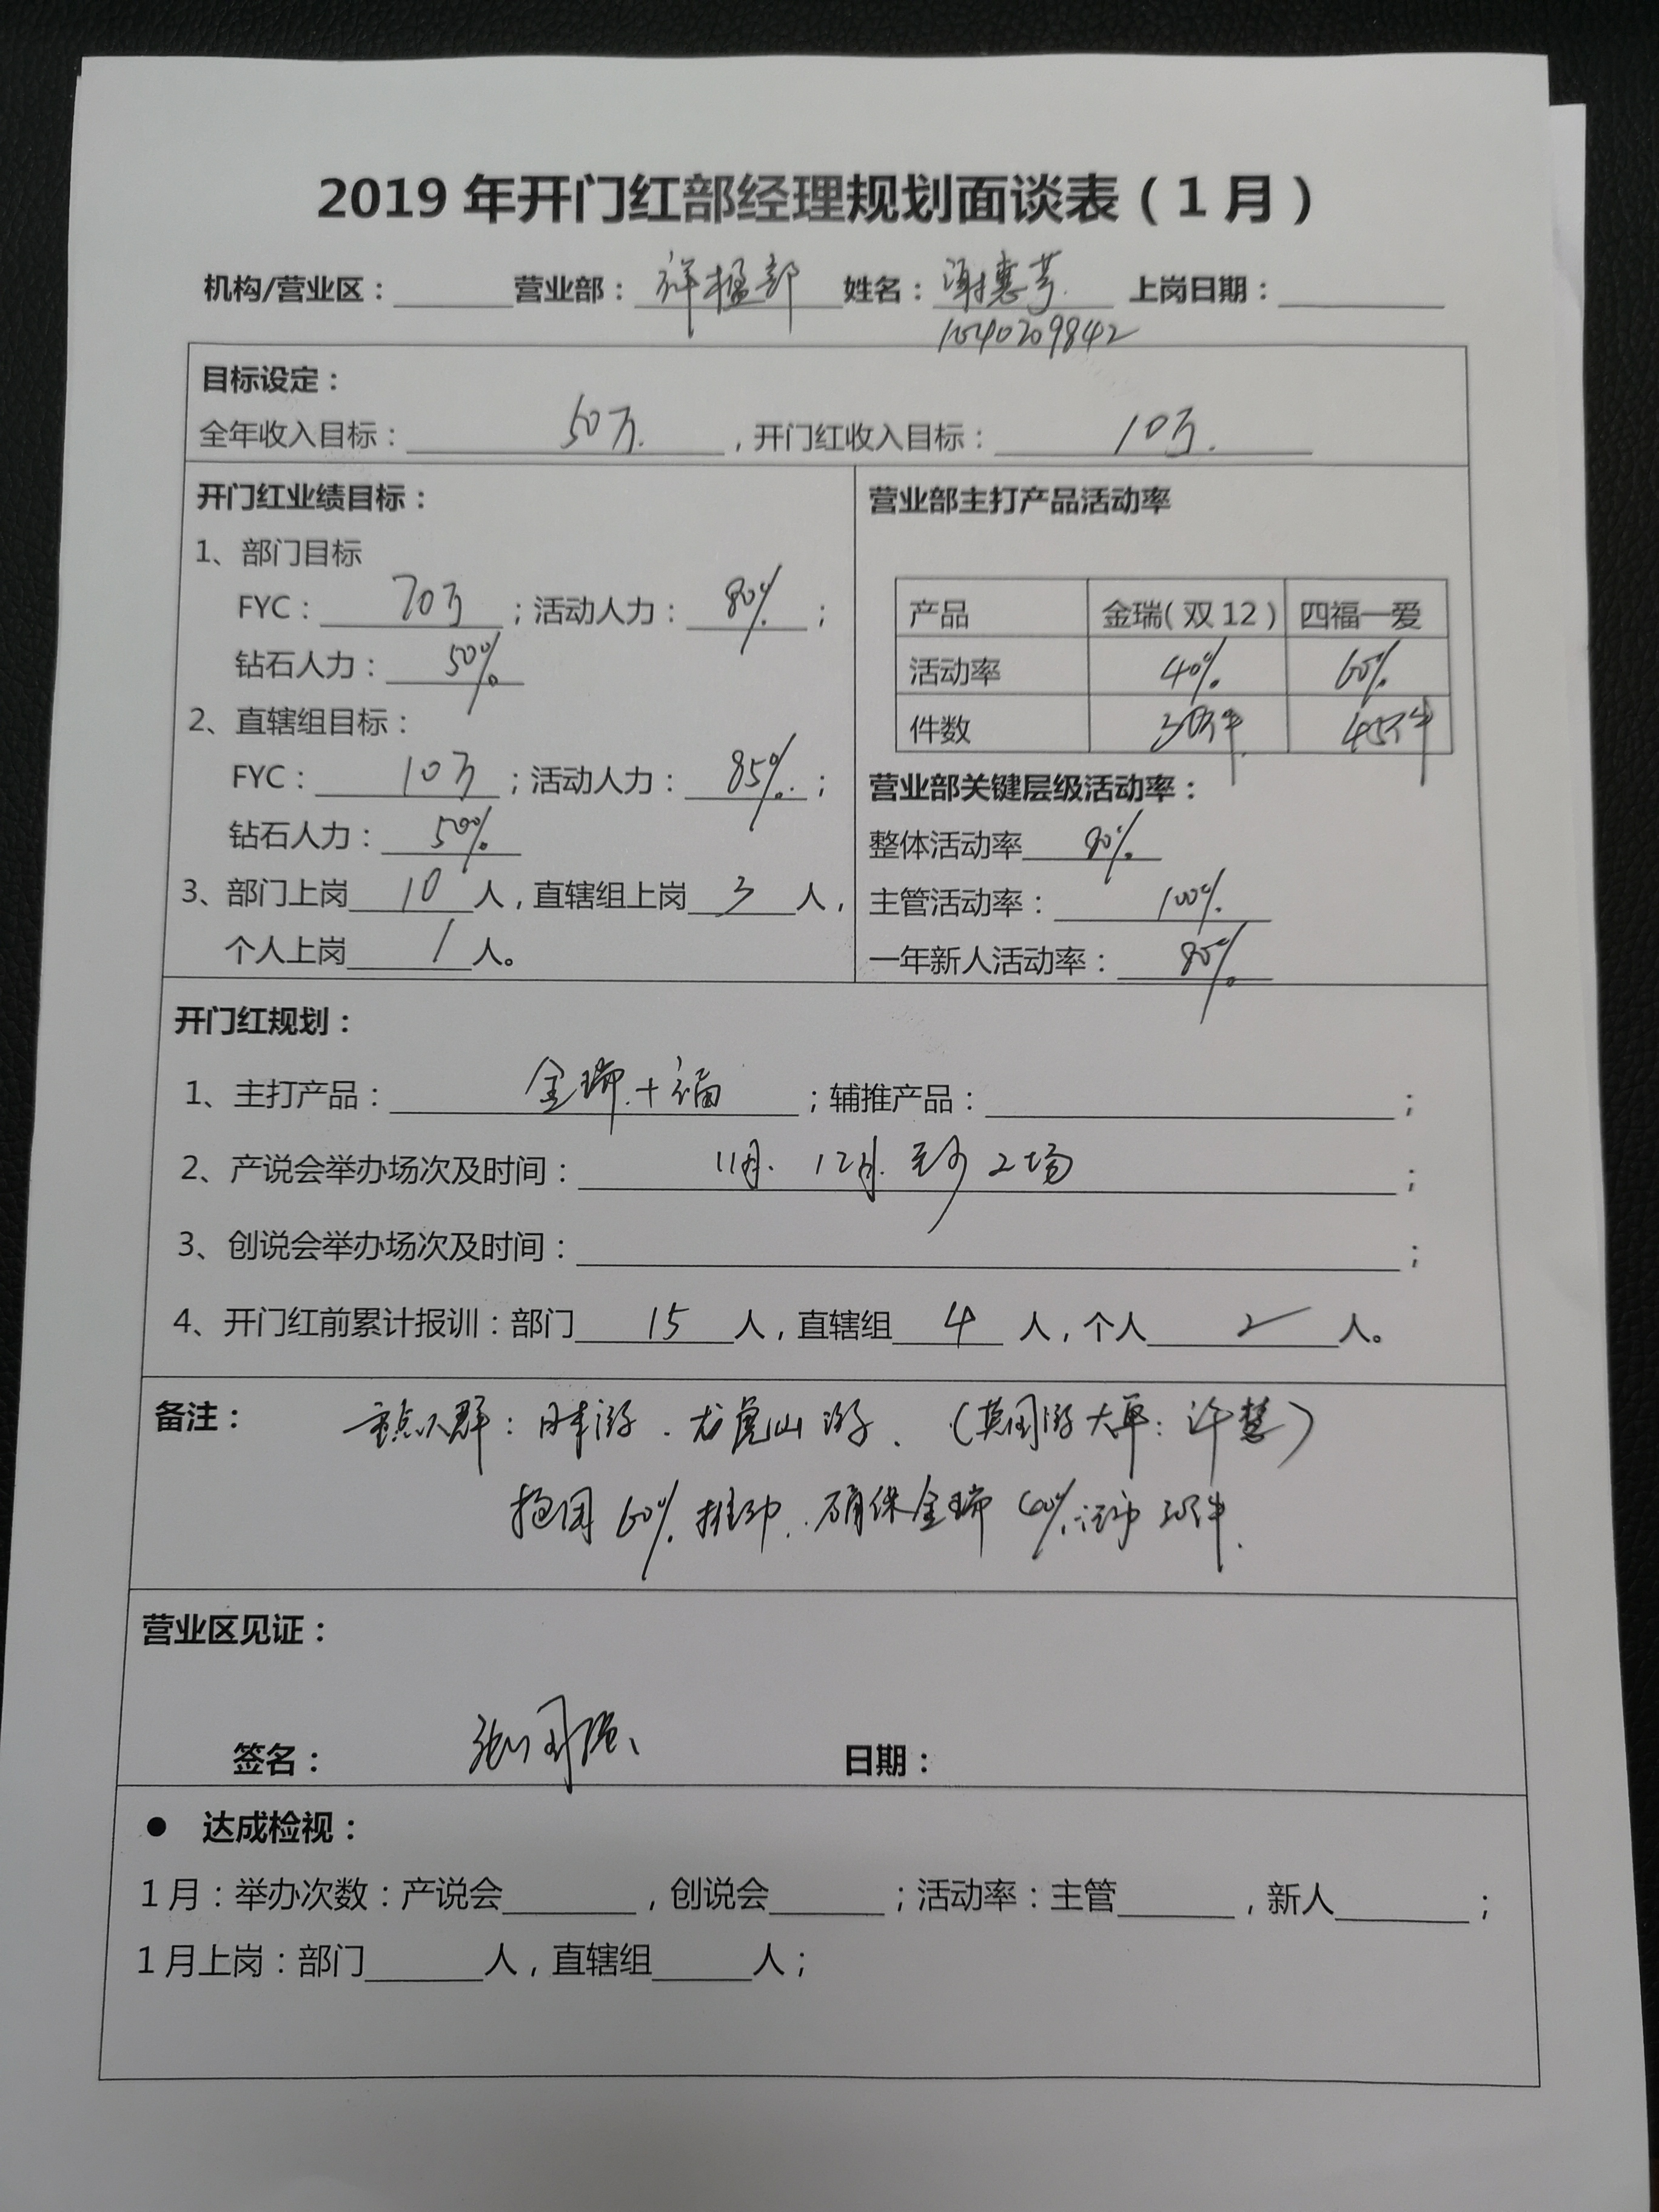 2019年开门红部经理规划面谈表（1月）
机构/营业区：______营业部：祥楹部 姓名：谢惠芳 上岗日期：______
1540209842
目标设定：
全年收入目标：50万.，开门红收入目标：10万.
开门红业绩目标：
1、部门目标
FYC：70万；活动人力：80%；
钻石人力：50%
2、直辖组目标：
FYC：10万；活动人力：85%；
钻石人力：50%
3、部门上岗10人，直辖组上岗3人，
个人上岗1人。
营业部主打产品活动率
产品 金瑞（双12） 四福一爱
活动率 40% 60%
件数 30件 45件
营业部关键层级活动率：
整体活动率80%
主管活动率：100%
一年新人活动率：80%
开门红规划：
1、主打产品：金瑞+福；辅推产品：______；
2、产说会举办场次及时间：11月. 12月. 至少2场；
3、创说会举办场次及时间：______；
4、开门红前累计报训：部门15人，直辖组4人，个人2人。
备注： 重点人群：日本游. 龙虎山游. （英国游大平：许慧）
抱团60%推动. 确保金瑞40%活动30件.
营业区见证：
签名：张国强 日期：
● 达成检视：
1月：举办次数：产说会______，创说会______；活动率：主管______，新人______；
1月上岗：部门______人，直辖组______人；